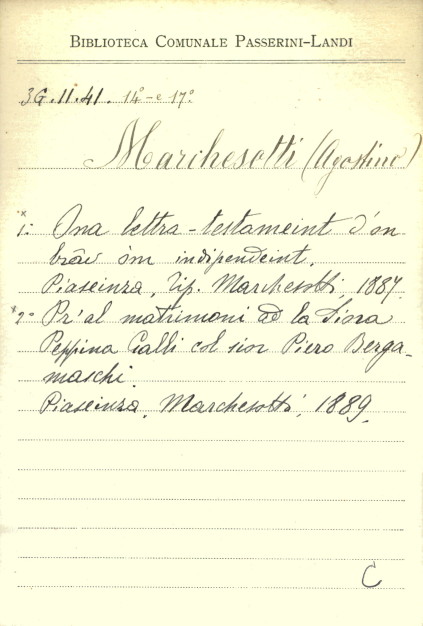 BIBLIOTECA COMUNALE PASSERINI-LANDI
3G.11.41. 14° e 17°
Marchesotti (Agostino)
*1° Ona lettra-testameint d'on
brāv òm indipendeint.
Piaseinza, Tip. Marchesotti, 1887.
*2° Pr'al matrimoni ad la Siora
Peppina Galli col sior Piero Berga-
maschi.
Piaseinza, Marchesotti, 1889.
C